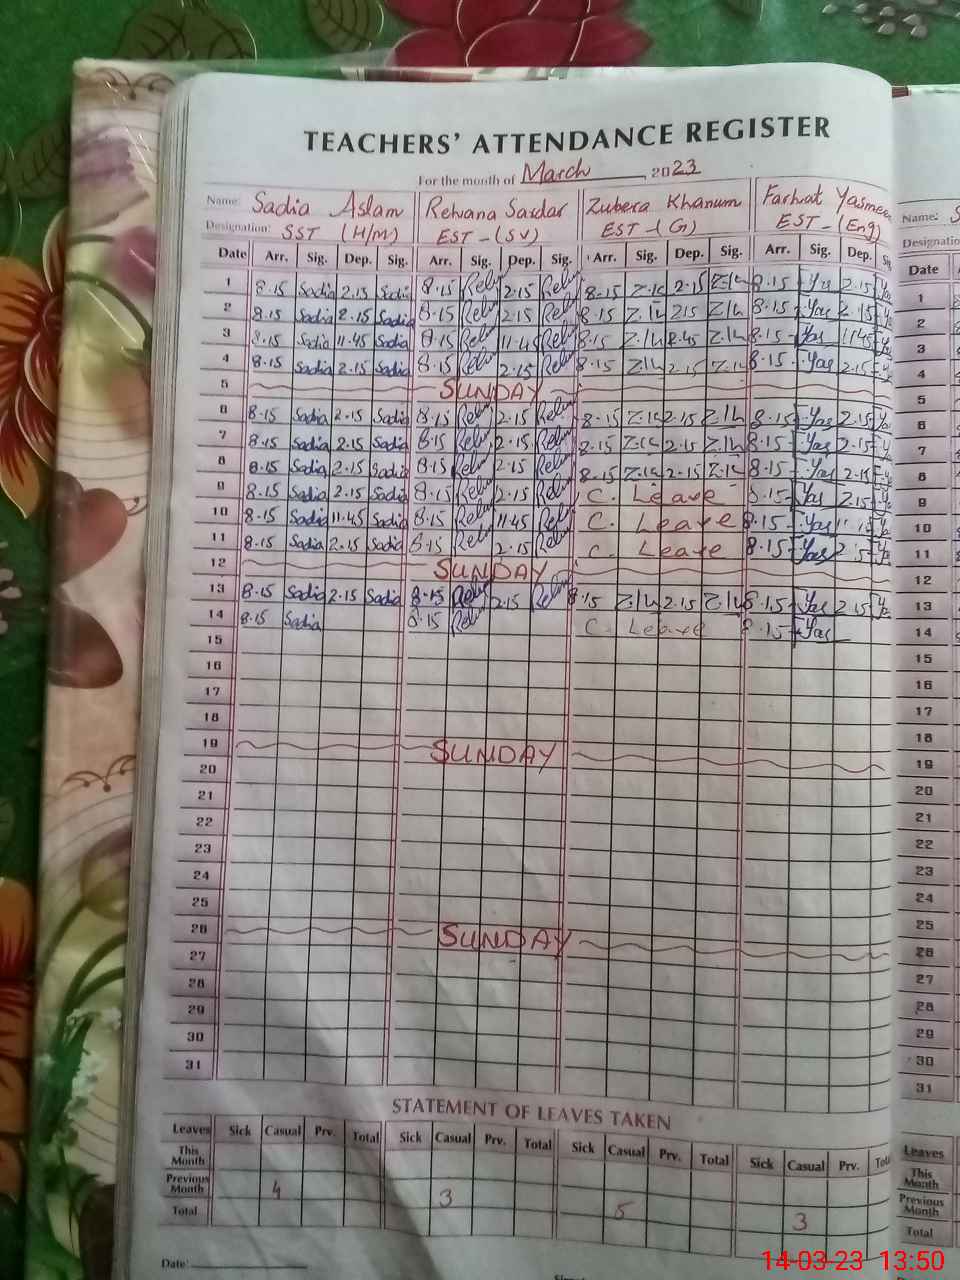 TEACHERS' ATTENDANCE REGISTER
For the month of March, 2023
Name: Sadia Aslam Rehana Sardar Zubera Khanum Farhat Yasmeen Name: S
Designation: SST (H/M) EST-(SV) EST-(G) EST-(Eng) Designatio
Date Arr. Sig. Dep. Sig. Arr. Sig. Dep. Sig. Arr. Sig. Dep. Sig. Arr. Sig. Dep. Sig Date
1 8.15 Sadia 2.15 Sadia 8.15 2.15 8.15 Z.K 2.15 Z.K 8.15 Yas 2.15 Yas 1
2 8.15 Sadia 2.15 Sadia 8.15 2.15 8.15 Z.K 2.15 Z.K 8.15 Yas 2.15 2
3 8.15 Sadia 11.45 Sadia 8.15 11.45 8.15 Z.K Z.K 8.15 Yas 11.45 3
4 8.15 Sadia 2.15 Sadia 8.15 2.15 8.15 Z.K 2.15 Z.K 8.15 Yas 2.15 4
5 SUNDAY 5
6 8.15 Sadia 2.15 Sadia 8.15 2.15 8.15 Z.K 2.15 Z.K 8.15 Yas 2.15 6
7 8.15 Sadia 2.15 Sadia 8.15 2.15 8.15 Z.K 2.15 Z.K 8.15 Yas 2.15 7
8 8.15 Sadia 2.15 Sadia 8.15 2.15 8.15 Z.K 2.15 Z.K 8.15 Yas 2.15 8
9 8.15 Sadia 2.15 Sadia 8.15 2.15 C. Leave 8.15 Yas 2.15 9
10 8.15 Sadia 11.45 Sadia 8.15 11.45 C. Leave 8.15 Yas 10
11 8.15 Sadia 2.15 Sadia 8.15 2.15 C. Leave 8.15 Yas 2.15 11
12 SUNDAY 12
13 8.15 Sadia 2.15 Sadia 8.15 2.15 8.15 Z.K 2.15 Z.K 8.15 Yas 2.15 Yas 13
14 8.15 Sadia 8.15 C. Leave 8.15 Yas 14
15 15
16 16
17 17
18 18
19 SUNDAY 19
20 20
21 21
22 22
23 23
24 24
25 25
26 SUNDAY 26
27 27
28 28
29 29
30 30
31 31
STATEMENT OF LEAVES TAKEN
Leaves Sick Casual Prv. Total Sick Casual Prv. Total Sick Casual Prv. Total Sick Casual Prv. Tot Leaves
This Month This Month
Previous Month 4 3 5 3 Previous Month
Total Total
Date:
14-03-23 13:50